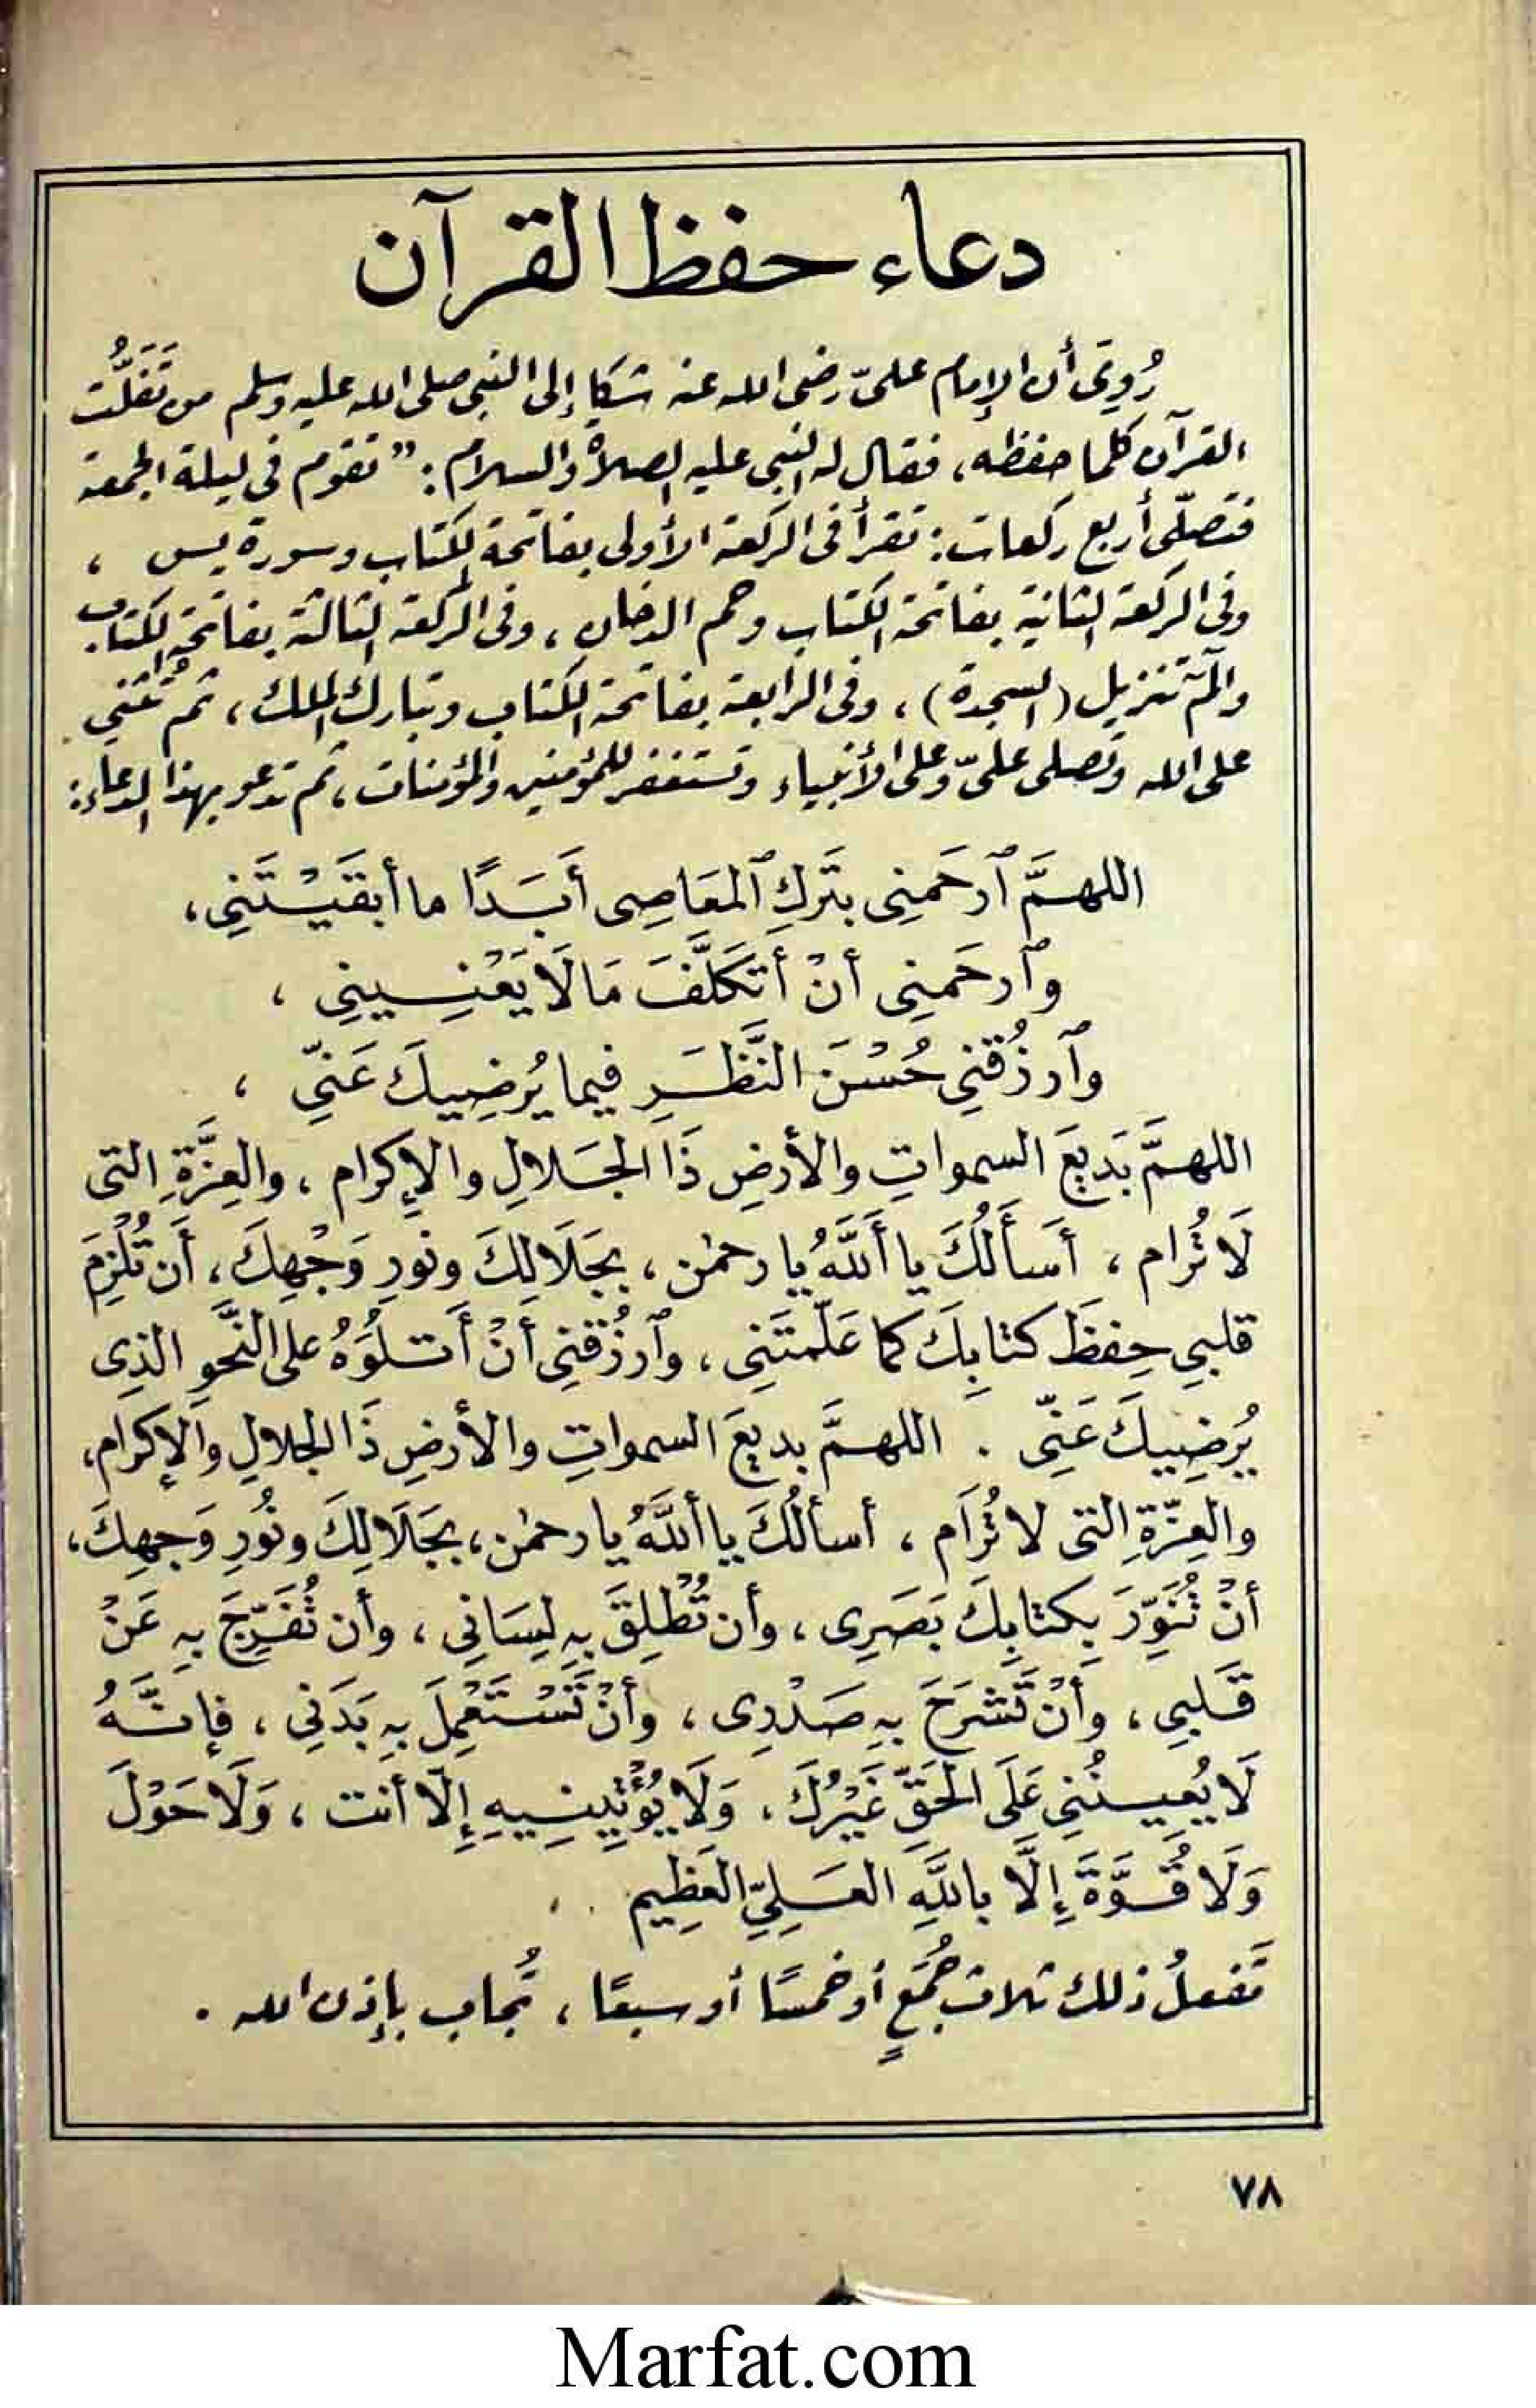 دعاء حفظ القرآن
رُوِيَ أن الإمام عليّ رضى الله عنه شكا إلى النبى صلى الله عليه وسلم من تَفَلُّت
القرآن كلما حفظه، فقال له النبى عليه الصلاة والسلام: " تقوم فى ليلة الجمعة
فتصلّى أربع ركعات: تقرأ فى الركعة الأولى بفاتحة الكتاب وسورة يس ،
وفى الركعة الثانية بفاتحة الكتاب وحم الدخان ، وفى الركعة الثالثة بفاتحة الكتاب
والٓمٓ تنزيل (السجدة) ، وفى الرابعة بفاتحة الكتاب وتبارك الملك ، ثم تُثنِي
على الله وتصلى علىّ وعلى الأنبياء وتستغفر للمؤمنين والمؤمنات ، ثم تدعو بهذا الدعاء:
اللهمَّ ٱرحَمنِى بتَركِ ٱلمعَاصِى أَبَدًا ما أبقَيْتَنِى ،
وٱرحَمنِى أنْ أَتَكَلَّفَ مَا لَا يَعْنِينِى ،
وٱرزُقنِى حُسْنَ النَّظَرِ فيما يُرضِيكَ عَنّى ،
اللهمَّ بَديعَ السمواتِ والأرضِ ذَا الجَلالِ والإكرام ، والعِزَّةِ التى
لَا تُرام ، أسَألُكَ يا أَللَّهُ يا رحمٰن ، بجَلَالِكَ ونورِ وَجْهِكَ ، أَن تُلْزِمَ
قلبِى حِفظَ كتابِكَ كما عَلّمتَنِى ، وٱرزُقنِى أَنْ أَتلُوَهُ على النَّحوِ الذِى
يُرضِيكَ عَنِّى . اللهمَّ بديعَ السمواتِ والأرضِ ذَا الجلالِ والإكرام،
والعِزّةِ التى لا تُرَام ، أسألُكَ يا أللَّهُ يا رحمٰن ، بجَلَالِكَ ونُورِ وَجهِكَ ،
أنْ تُنَوِّرَ بِكتابِكَ بَصَرِى ، وأن تُطْلِقَ بِهِ لِسَانِى ، وأن تُفَرِّجَ بِهِ عَنْ
قَلبِى ، وأنْ تَشرَحَ بِهِ صَدْرِى ، وأنْ تَسْتَعْمِلَ بِهِ بَدَنِى ، فإنَّهُ
لَا يُعِينُنِى عَلَى الحَقِّ غَيْرُكَ ، وَلَا يُؤْتِينِيهِ إلّا أنت ، وَلَا حَوْلَ
وَلَا قُوَّةَ إِلَّا باللَّهِ العَلِىّ العَظِيم .
تَفعلُ ذلك ثلاث جُمَعٍ أو خمسًا أو سبعًا ، تُجاب بإذن الله .
٧٨
Marfat.com